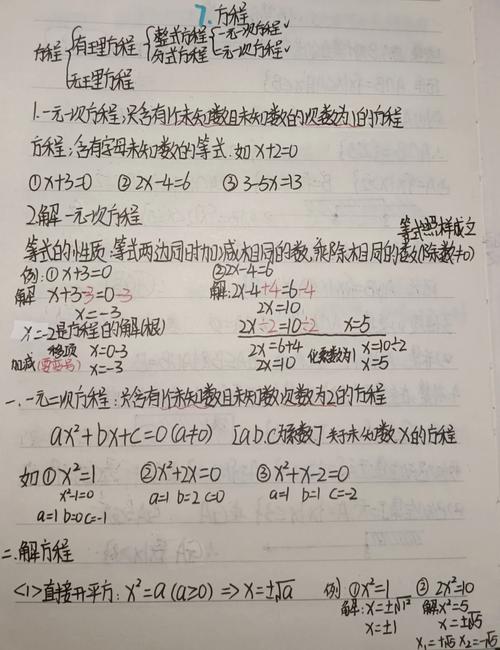 7.方程
方程{有理方程{整式方程{一元一次方程✓
分式方程 一元二次方程✓
无理方程
1.一元一次方程:只含有1个未知数且未知数的次数为1的方程
方程:含有字母未知数的等式.如x+2=0
①x+3=0 ②2x-4=6 ③3-5x=13
2.解一元一次方程
等式照样成立
等式的性质:等式两边同时加减相同的数,乘除相同的数(除数≠0)
例:①x+3=0 ②2x-4=6
解 x+3-3=0-3 解:2x-4+4=6-4
x=-3 2x=10
x=-2是方程的解(根) 2x÷2=10÷2 x=5
移项 x=0-3 2x=6+4 化系数为1 x=10÷2
加减(要变号) x=-3 2x=10 x=5
一.一元二次方程:只含有1个未知数且未知数次数为2的方程
ax²+bx+c=0(a≠0) [a.b.c为系数]关于未知数x的方程
如①x²=1 ②x²+2x=0 ③x²+x-2=0
x²-1=0 a=1 b=2 c=0 a=1 b=1 c=-2
a=1 b=0 c=-1
二.解方程
<1>直接开平方:x²=a(a≥0)⇒x=±√a 例 ①x²=1 ② 2x²=10
解:x=±√1² 解x²=5
x=±1 x=±√5
x₁=+√5 x₂=-√5